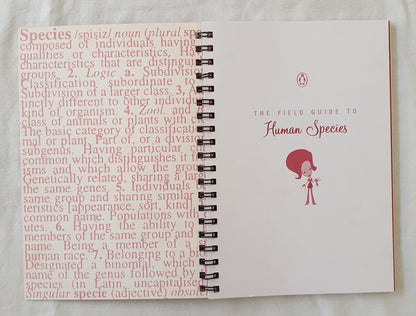 Species /spisiz/ noun (plural spe
composed of individuals having
qualities or characteristics, Hav
characteristics that are distingui
groups. 2. Logic a. Subdivision
Classification subordinate to
Subdivision of a larger class. 3, A
tinctly different to other individu
kind of organism. 4. Zool. and B
class of animals or plants with c
The basic category of classificati
mal or plant. Part of, or a divisio
subgenus. Having particular c
common which distinguishes it f
isms and which allow the group
Genetically related, sharing a lar
the same genes. 5. Individuals
same group and sharing similar
teristics [appearance, sort, kind,
common name. Populations with
utes. 6. Having the ability to
members of the same group and
name. Being a member of a
human race. 7. Belonging to a bio
Designated a binomial, which
name of the genus followed by
species (in Latin, uncapitalised
Singular specie (adjective) obsolet
THE FIELD GUIDE TO
Human Species